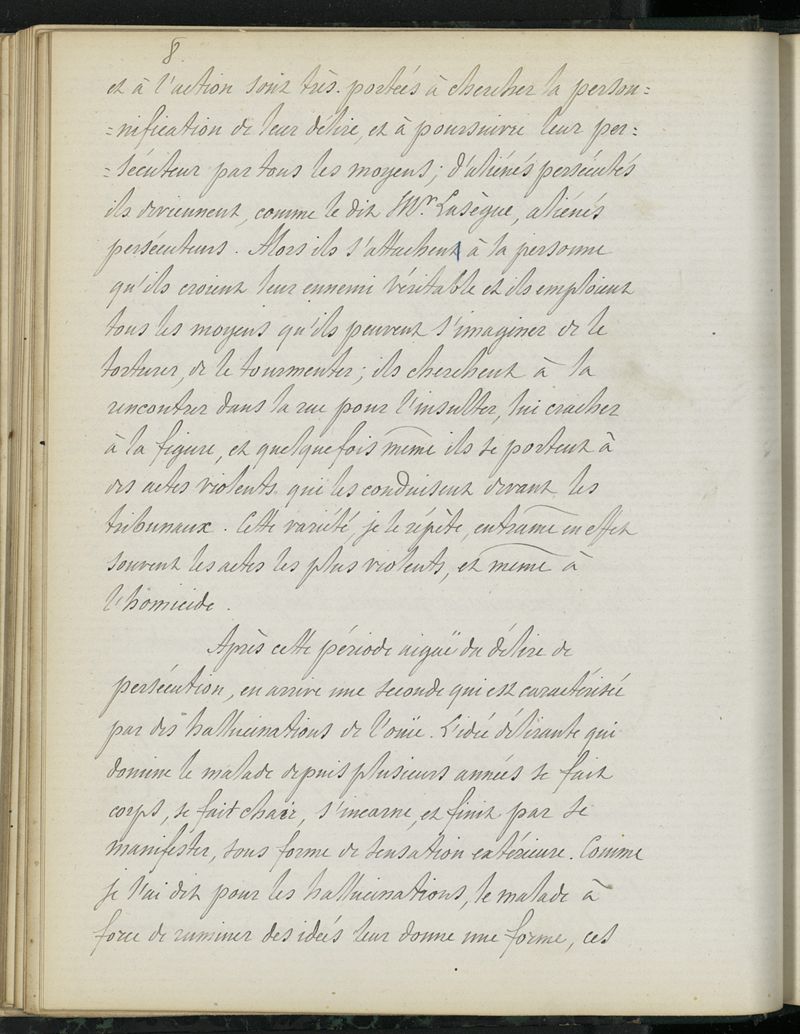 8
et à l'action sont très portées à chercher la person=
=nification de leur délire, et à poursuivre leur per=
=sécuteur par tous les moyens; d'aliénés persécutés
ils deviennent, comme le dit Mr. Lasègue, aliénés
persécuteurs. Alors ils s'attachent à la personne
qu'ils croient leur ennemi véritable et ils emploient
tous les moyens qu'ils peuvent s'imaginer de le
torturer, de le tourmenter; ils cherchent à la
rencontrer dans la rue pour l'insulter, lui cracher
à la figure, et quelquefois même ils se portent à
des actes violents qui les conduisent devant les
tribunaux. Cette variété, je le répète, entraîne en effet
souvent les actes les plus violents, et même à
l'homicide.
Après cette période aiguë du délire de
persécution, en arrive une seconde qui est caractérisée
par des hallucinations de l'ouïe. L'idée délirante qui
domine le malade depuis plusieurs années se fait
corps, se fait chair, s'incarne, et finit par se
manifester, sous forme de sensation extérieure. Comme
je l'ai dit pour les hallucinations, le malade à
force de ruminer des idées leur donne une forme, ces